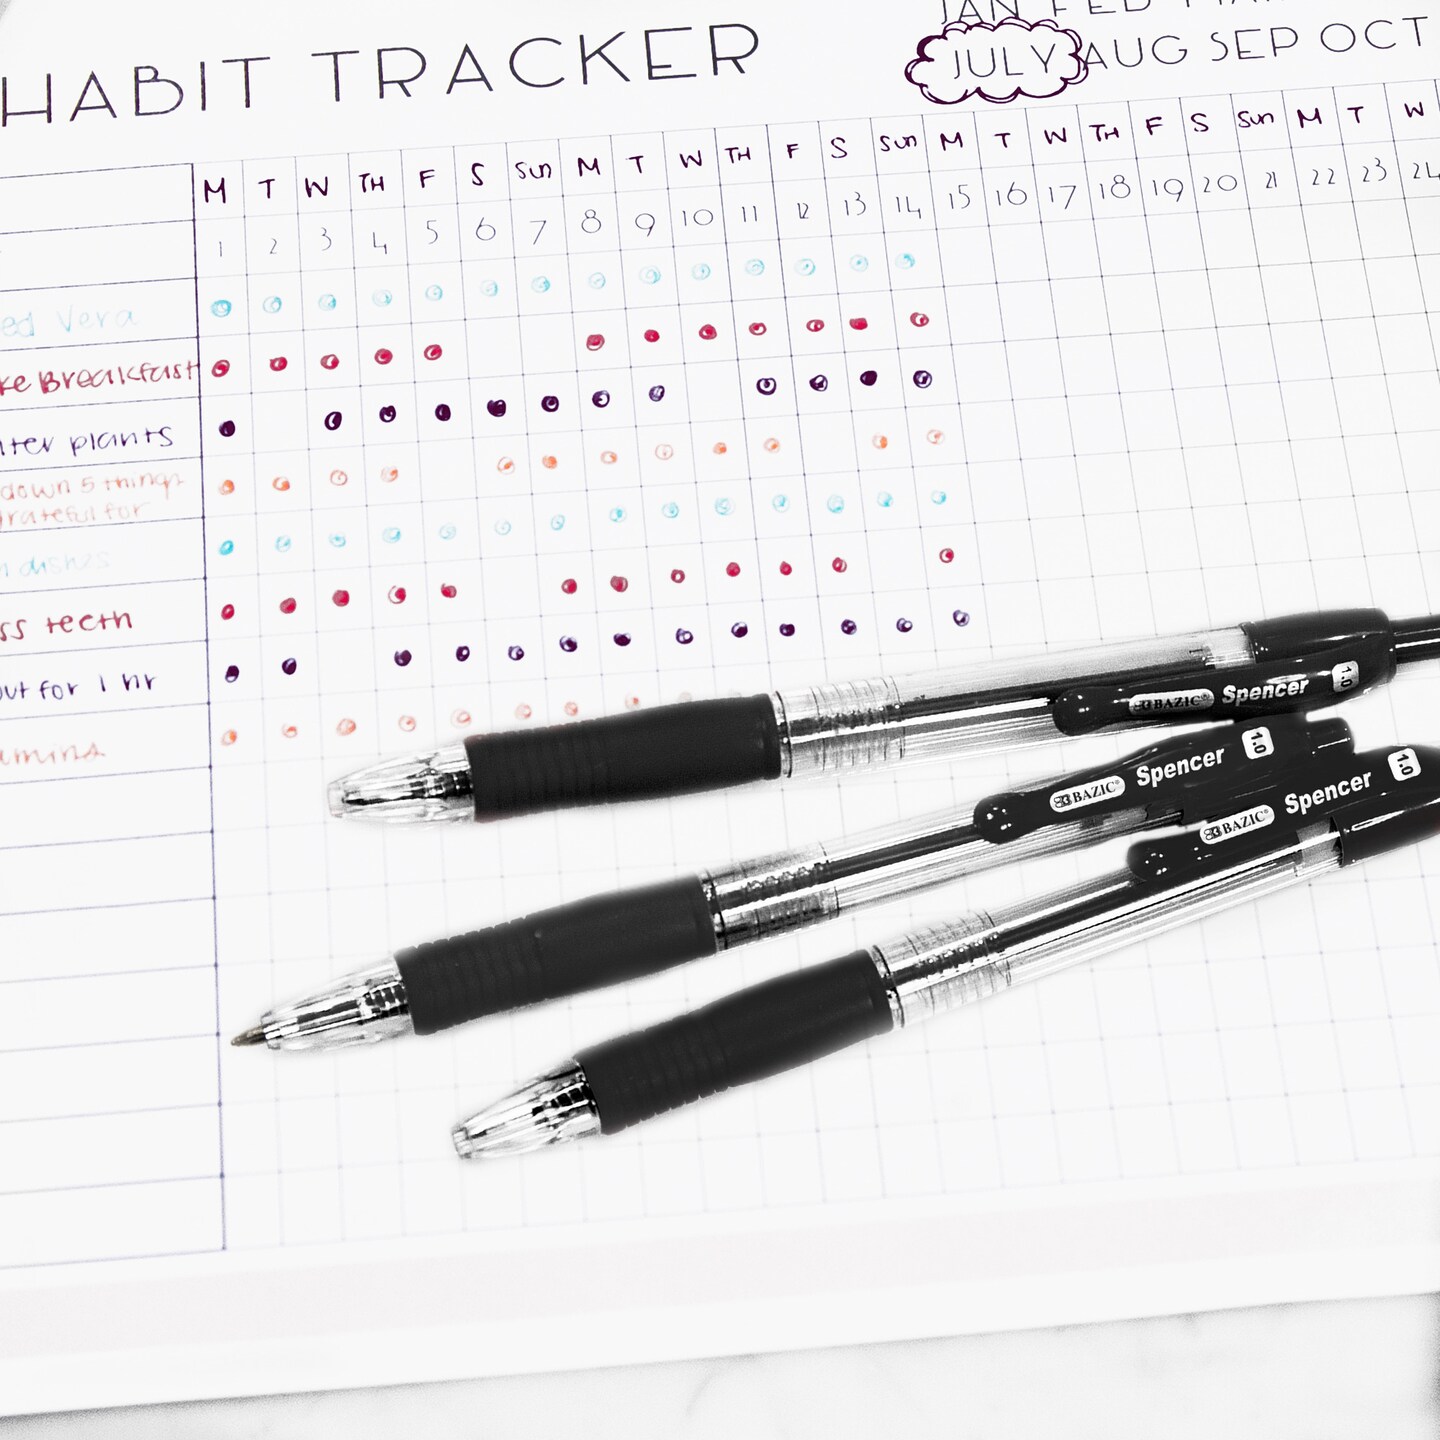 JAN FEB
HABIT TRACKER
JULY AUG SEP OCT
M T W TH F S Sun M T W TH F S Sun M T W TH F S Sun M T W
1 2 3 4 5 6 7 8 9 10 11 12 13 14 15 16 17 18 19 20 21 22 23 24
ed Vera
ke Breakfast
ter plants
down 5 things
grateful for
dishes
ss teeth
out for 1 hr
amins
BAZIC Spencer 1.0
BAZIC Spencer 1.0
BAZIC Spencer 1.0